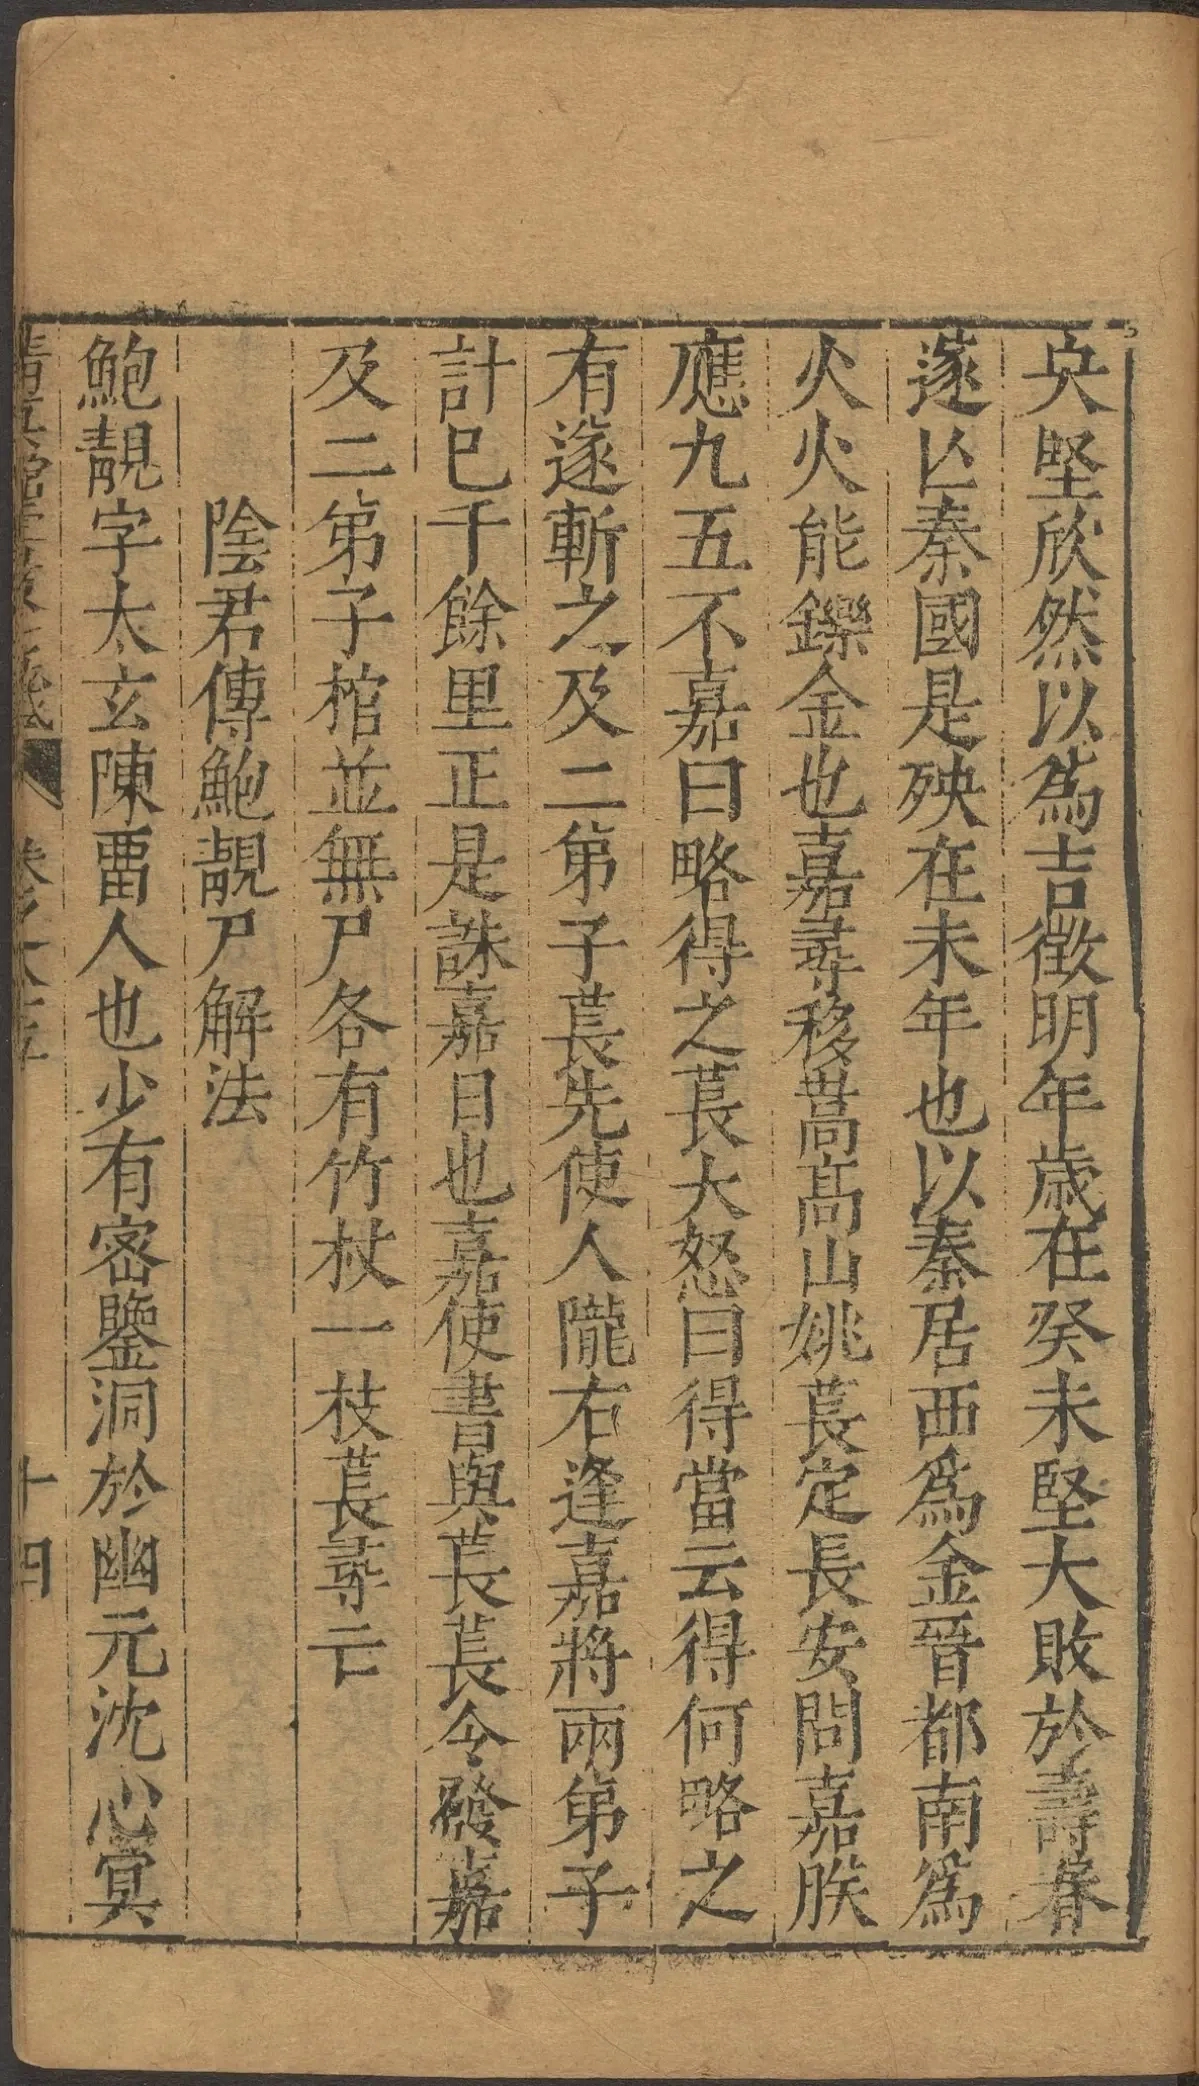 央堅欣然以為吉徵明年歲在癸未堅大敗於壽春
遂亾秦國是殃在未年也以秦居西爲金晉都南爲
火火能鑠金也嘉尋移嵩高山姚萇定長安問嘉朕
應九五不嘉曰略得之萇大怒曰得當云得何略之
有遂斬之及二弟子萇先使人隴右逢嘉將兩弟子
計已千餘里正是誅嘉日也嘉使書與萇萇令發嘉
及二弟子棺並無尸各有竹杖一枝萇尋亡
陰君傳鮑靚尸解法
鮑靚字太玄陳畱人也少有密鑒洞於幽元沈心冥
卷之六五
十四